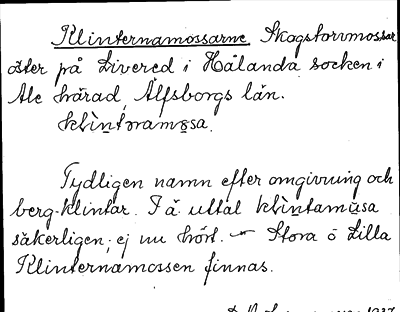 Klinternamossarne Skogstorvmossar
öster på Livered i Hålanda socken i
Ale härad, Älfsborgs län.
Tydligen namn efter omgivning och
berg-klintar. I ä. uttal
säkerligen; ej nu hört. — Stora o Lilla
Klinternamossen finnas.